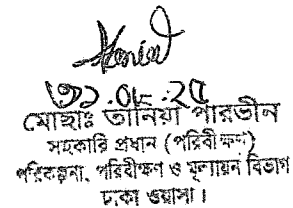 ৩১.০৮.২৫
মোছাঃ তানিয়া পারভীন
সহকারি প্রধান (পরিবীক্ষণ)
পরিকল্পনা, পরিবীক্ষণ ও মূল্যায়ন বিভাগ
ঢাকা ওয়াসা।